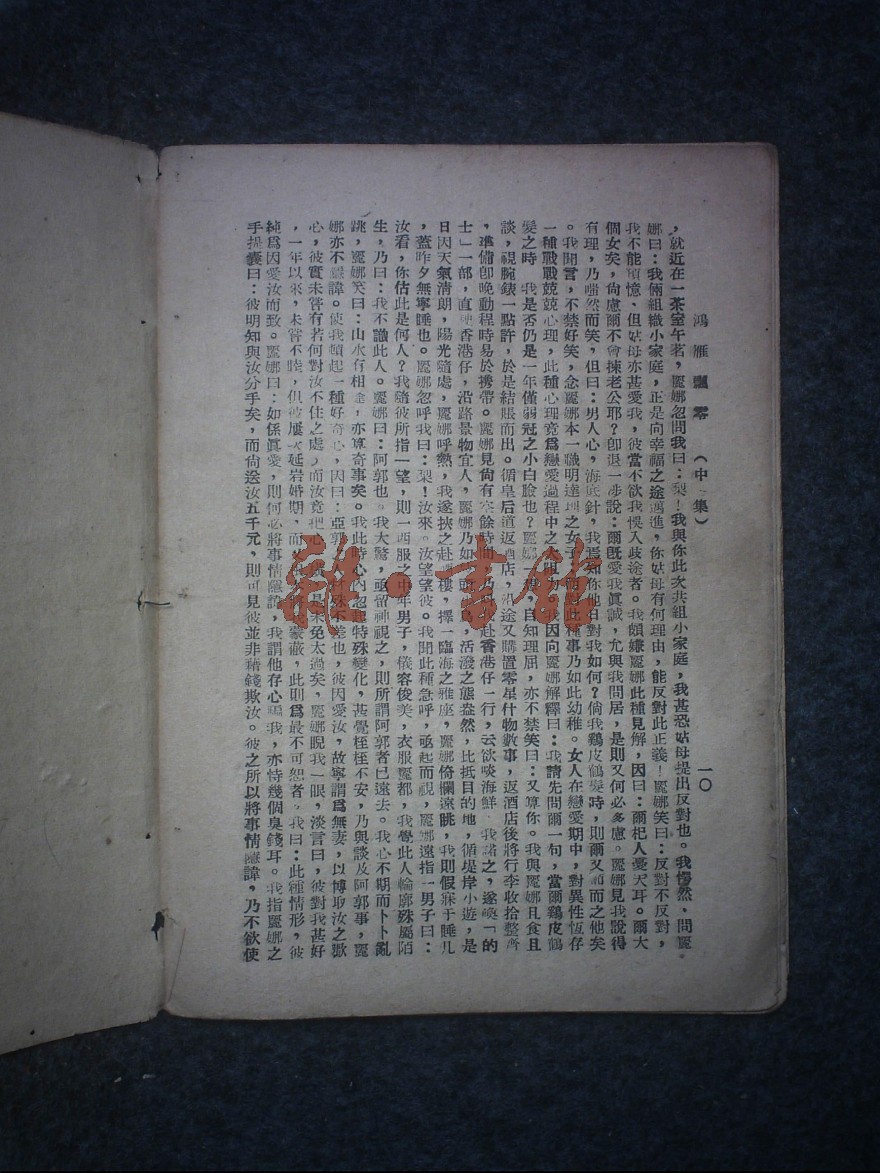 鴻雁飄零 (中集) 一〇
，就近在一茶室午茗，麗娜忽問我曰：梨！我與你此次共組小家庭，我甚恐姑母提出反對也。我愕然，問麗
娜曰：我倆組織小家庭，正是向幸福之途邁進，你姑母有何理由，能反對此正義！麗娜笑曰：反對不反對，
我不能臆憶，但姑母亦甚愛我，彼當不欲我悞入歧途者。我頗嫌麗娜此種見解，因曰：爾杞人憂天耳。爾大
個女矣，尙慮爾不會揀老公耶？卽退一步說：爾旣愛我眞誠，尤與我同居，是則又何必多慮。麗娜見我說得
有理，乃嗤然而笑，但曰：男人心，海底針，我焉知你他日對我如何？倘我鷄皮鶴髮時，則爾又 而之他矣
。我聞言，不禁好笑，念麗娜本一職明達理之女子，而對此種事乃如此幼稚。女人在戀愛期中，對異性恆存
一種戰戰兢兢心理，此種心理竟爲戀愛過程中之大 力。我因向麗娜解釋曰：我請先問爾一句，當爾鷄皮鶴
髮之時，我是否仍是一年僅弱冠之小白臉也？麗娜一想，自知理屈，亦不禁笑曰：又算你。我與麗娜且食且
談，視腕錶一點許，於是結賬而出。循皇后道返酒店，沿途又購置零星什物數事，返酒店後將行李收拾整齊
，準備卽晚動程時易於携帶。麗娜見尙有 餘時間，乃 赴香港仔一行，云欲啖海鮮，我諾之，遂喚「的
士」一部，直 香港仔，沿路景物宜人，麗娜乃如 鳥，活潑之態盎然，比抵目的地，循堤岸小遊，是
日因天氣淸朗，陽光隨處，麗娜呼熱，我遂挾之赴 樓，擇一臨海之雅座，麗娜倚欄遠眺，我則假寐于睡几
，蓋昨夕無寧睡也。麗娜忽呼我曰：梨！汝來。汝望望彼。我聞此種急呼，亟起而視，麗娜遠指一男子曰：
汝看，你估此是何人？我隨彼所指一望，則一西服之中年男子，儀容俊美，衣服麗都，我覺此人輪廓殊屬陌
生，乃曰：我不識此人。麗娜曰：阿郭也。我大驚，亟留神視之，則所謂阿郭者已遠去。我心不期而卜卜亂
跳，麗娜笑曰：山水有相逢，亦算奇事矣。我此時心內忽起特殊變化，甚覺桎桎不安，乃與談及阿郭事，麗
娜亦不隱諱。使我頓起一種好奇心，因曰：亞郭 殊不差也，彼因愛汝，故寧謂爲無妻，以博取汝之歡
心，彼實未嘗有若何對汝不住之處，而汝竟把心 是未免太過矣，麗娜睨我一眼，淡言曰，彼對我甚好
，一年以來，未嘗不睦，但彼屢次延宕婚期，而 蒙蔽，此則爲最不可恕者。我曰：此種情形，彼
純爲因愛汝而致。麗娜曰：如係眞愛，則何必將事情隱諱，我謂他存心騙我，亦恃幾個臭錢耳。我指麗娜之
手提囊曰：彼明知與汝分手矣，而倘送汝五千元，則可見彼並非藉錢欺汝。彼之所以將事情隱諱，乃不欲使
雜·書館